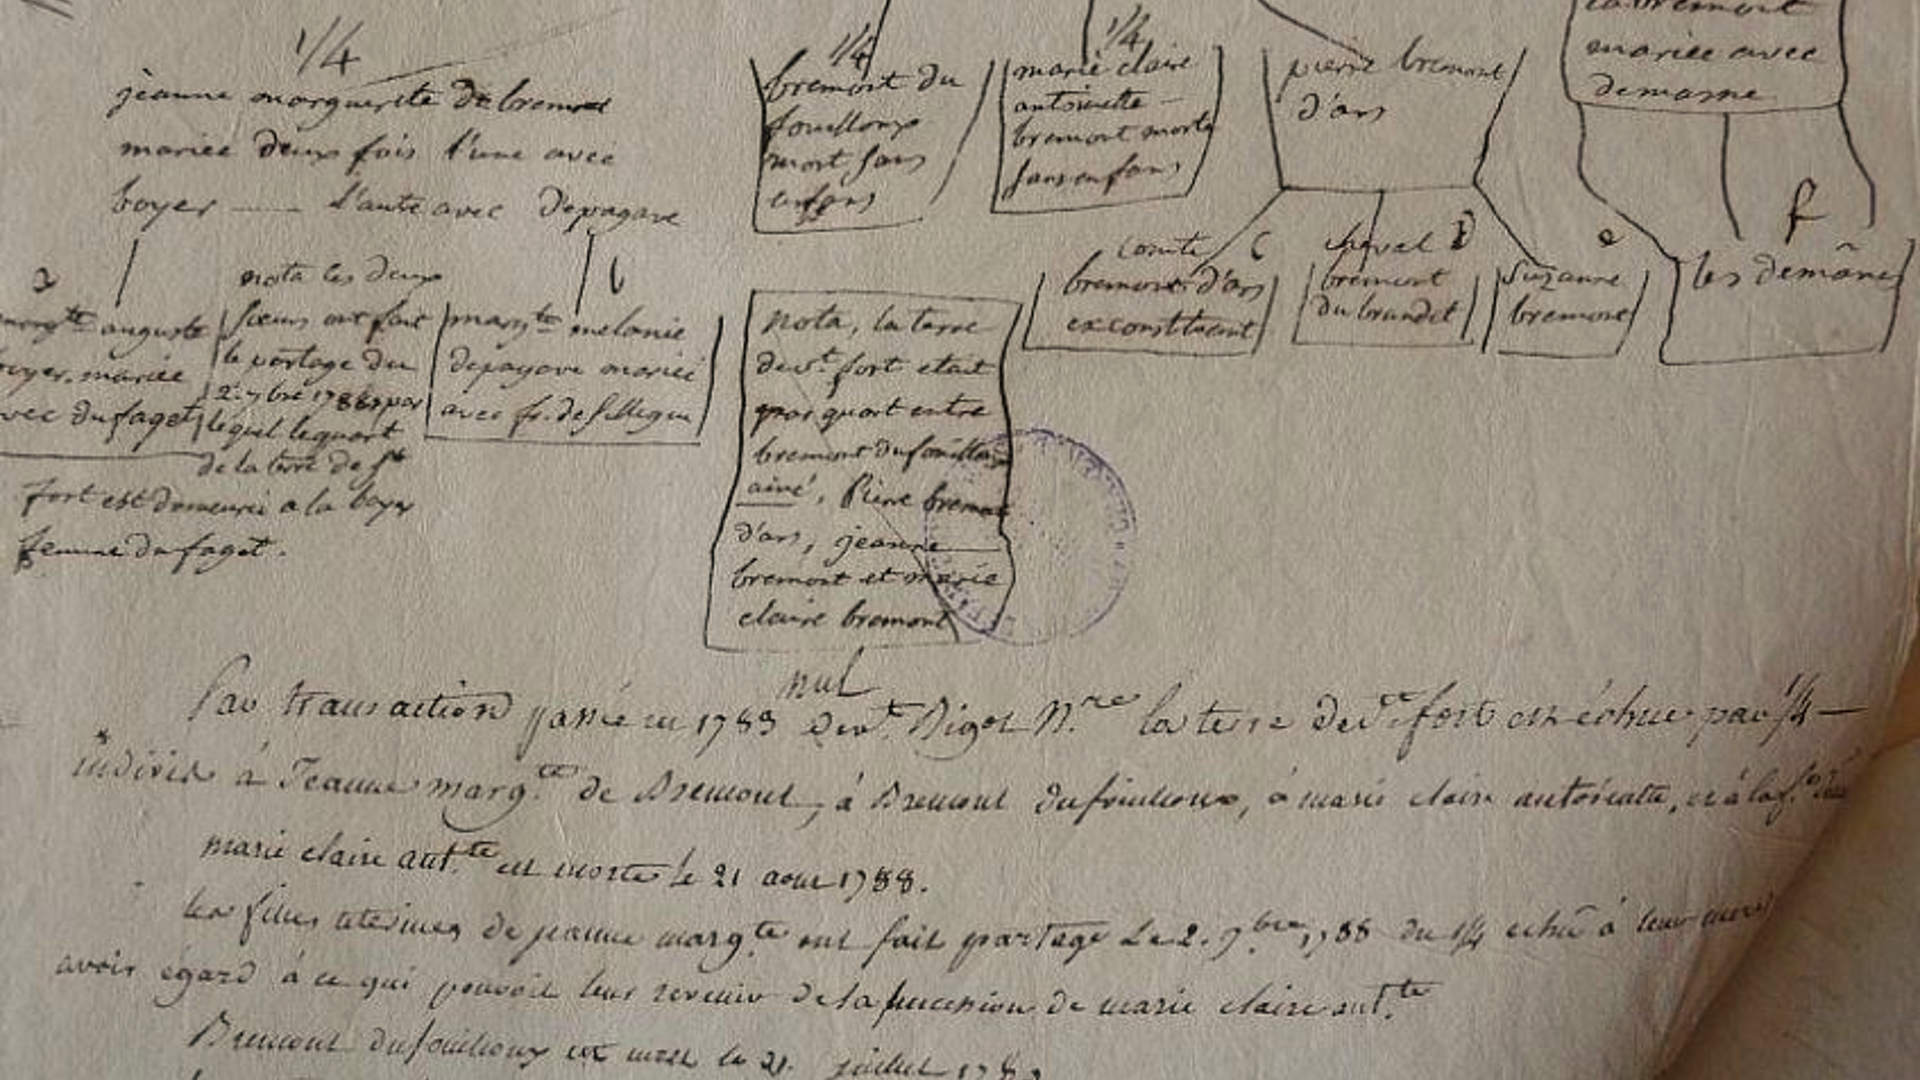 1/4
jeanne marguerite de bremont
mariée deux fois l'une avec
boyer —— l'autre avec depagave
1/4
bremont du
fouilloux
mort sans
enfans
1/4
marie claire
antoinette —
bremont morte
sans enfans
pierre bremont
d'ars
bremont
mariee avec
demasne
a
margte auguste
boyer, mariée
avec dufaget
nota les deux
sœurs ont fait
le partage du
2. 7bre 1788 par
lequel lequart
de la terre de st
fort est demeurée a la boyer
femme dufaget.
b
margte melanie
depagave mariée
avec fr. de
Nota, la terre
de st. fort etait
par quart entre
bremont dufouilloux
ainé, Pierre bremont
d'ars, jeanne
bremont et marie
claire bremont
comte C
bremont d'ars
exconstituant
cheval D
bremont
du
e
Suzanne
bremont
f
les demâne
nul
Par transaction passée en 1783 devt. Bigot Nre la terre de St fort est échue par 1/4 —
indivis à Jeanne margte de Bremont, à Bremont dufouilloux, à marie claire antoinette, et à
marie claire antte est morte le 21 aout 1788.
les filles uterines de jeanne margte ont fait partage Le 2. 7bre 1788 du 1/4 echu à leur mere
avoir égard à ce qui pouvoit leur revenir de la succession de marie claire antte
Bremont dufouilloux est mort le 21. juillet